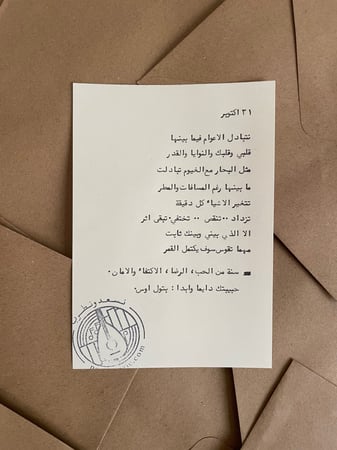 ٣١ اكتوبر
تتبادل الاعوام فيما بينها
قلبي وقلبك والنوايا والقدر
مثل البحار مع الغيوم تبادلت
ما بينها رغم المسافات والمطر
تتغير الاشياء كل دقيقة
تزداد ٠٠ تنقص ٠٠ تختفي، تبقى اثر
الا الذي بيني وبينك ثابت
مهما تقوس سوف يكتمل القمر
سنة من الحب، الرضا، الاكتفاء والامان.
حبيبتك دايما وابدا : بتول اوس.
.com